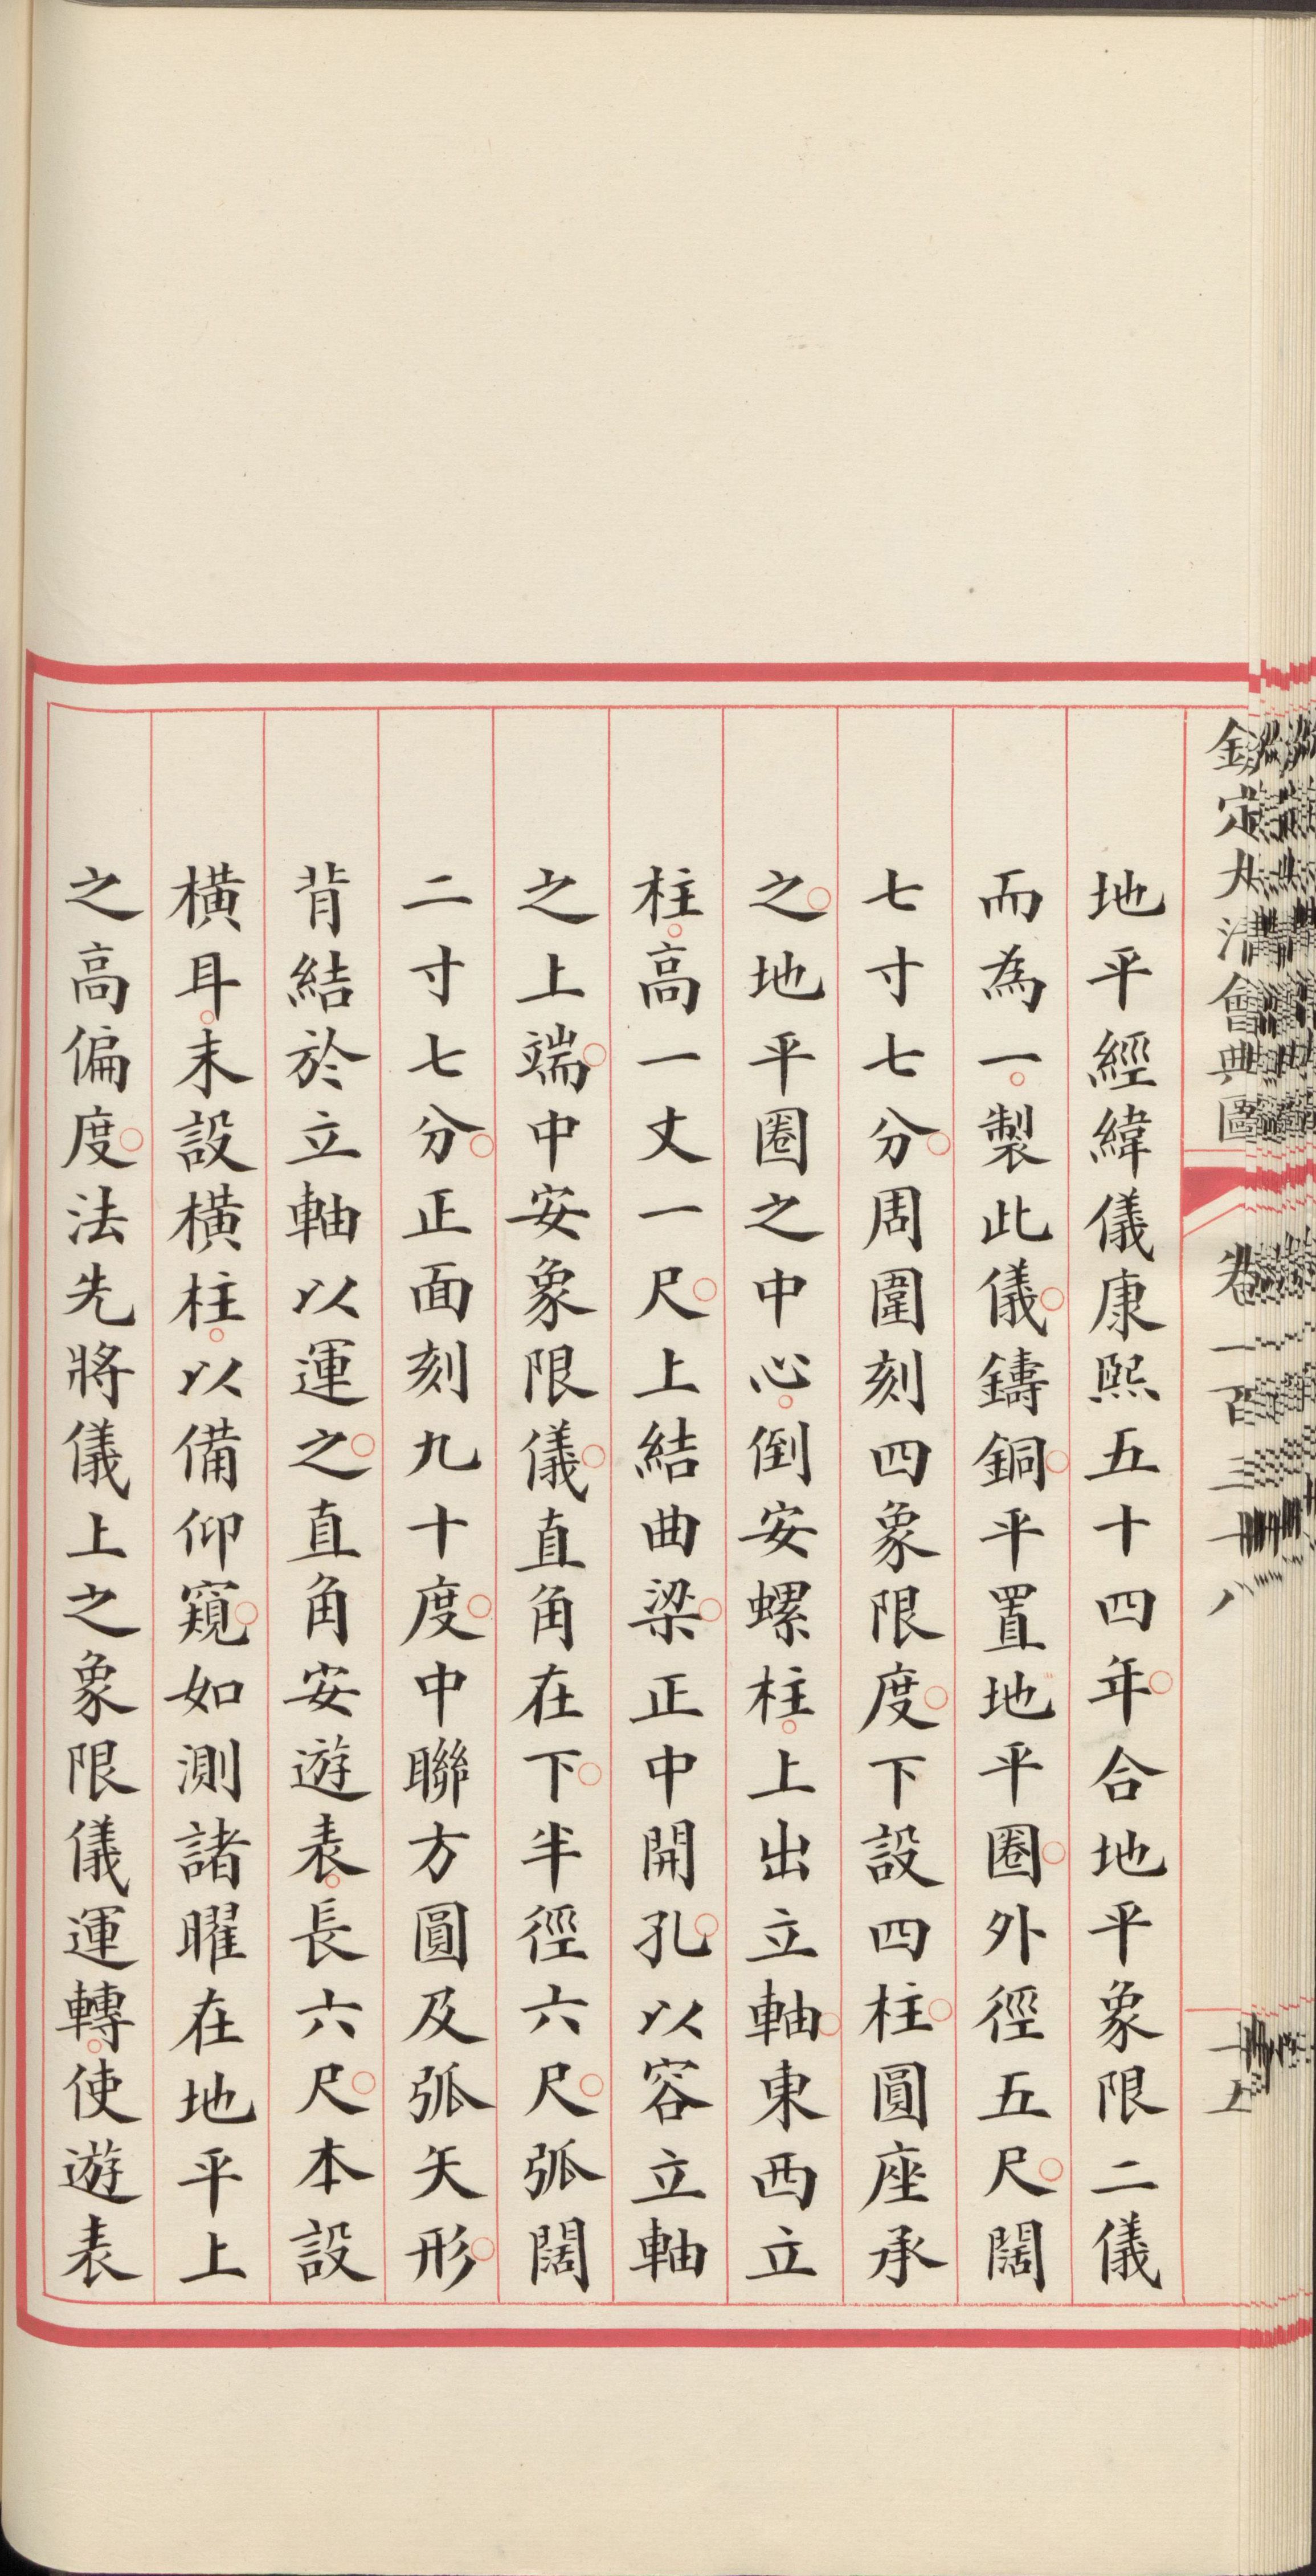 欽定大清會典圖 卷一百三十八
地平經緯儀康熙五十四年合地平象限二儀
而為一製此儀鑄銅平置地平圈外徑五尺闊
七寸七分周圍刻四象限度下設四柱圓座承
之地平圈之中心倒安螺柱上出立軸東西立
柱高一丈一尺上結曲梁正中開孔以容立軸
之上端中安象限儀直角在下半徑六尺弧闊
二寸七分正面刻九十度中聯方圓及弧矢形
背結於立軸以運之直角安遊表長六尺本設
橫耳末設橫柱以備仰窺如測諸曜在地平上
之高偏度法先將儀上之象限儀運轉使遊表